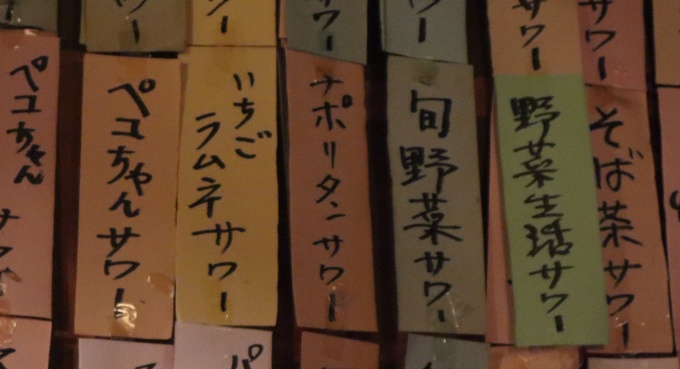 サワー
ワー
サワー
ワー
サワー
サワー
そば茶サワー
野菜生活サワー
旬野菜サワー
ナポリタンサワー
いちご
ラムネサワー
ペコちゃんサワー
ペコちゃん
サワー
パ